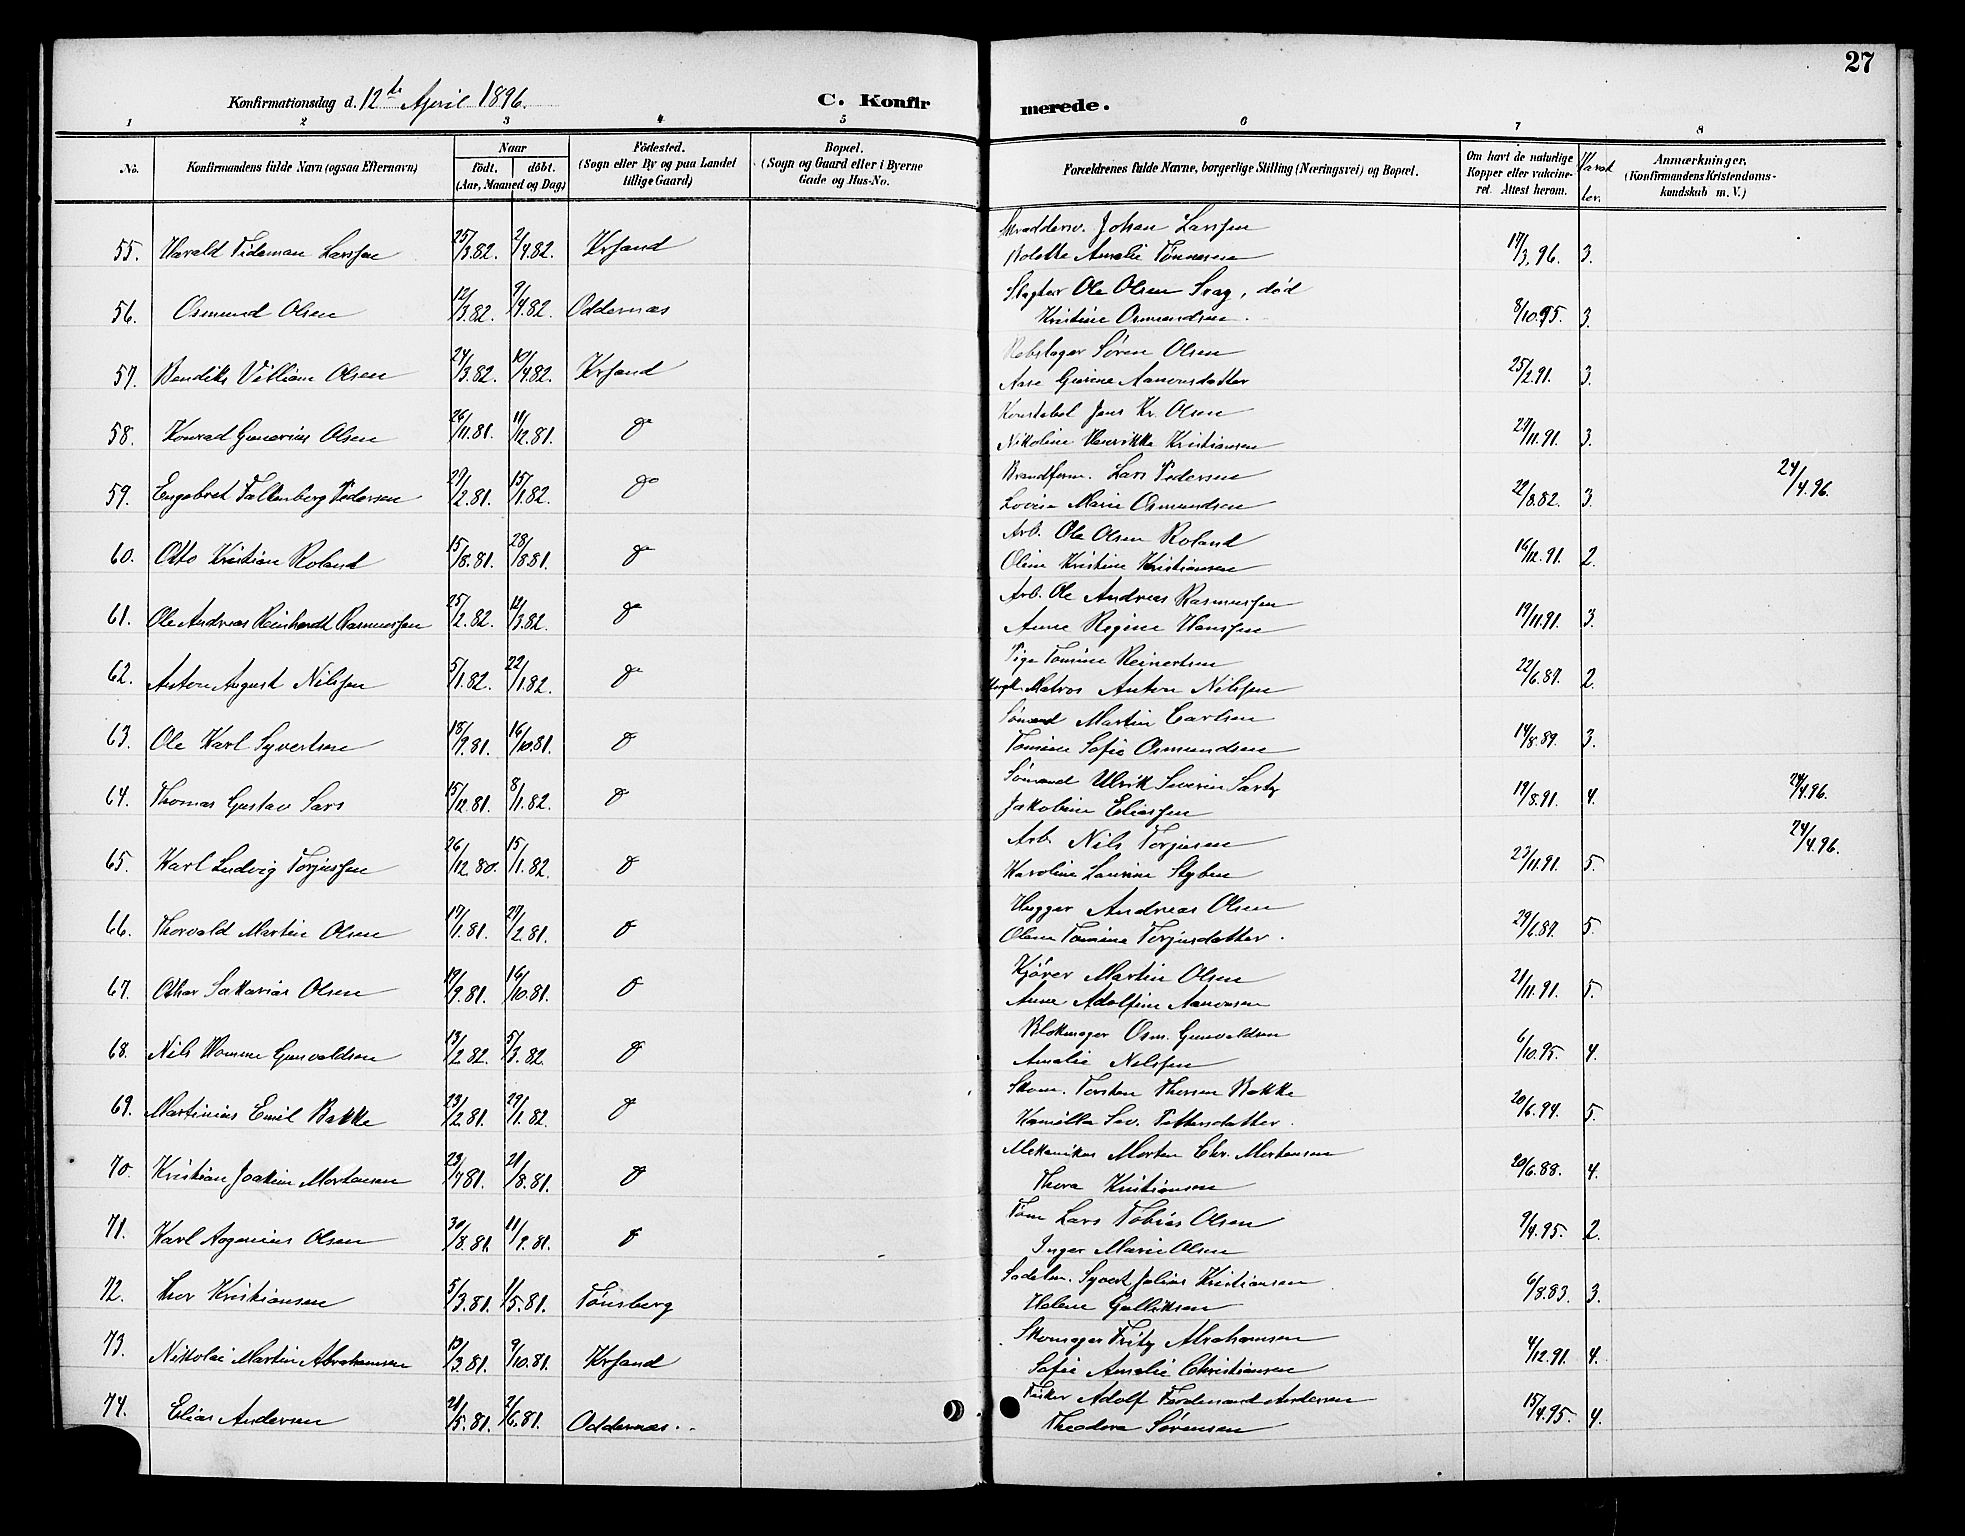 27
Konfirmationsdag d. 12te April 1896.
C. Konfirmerede.
1 2 3 4 5 6 7 8
No.
Konfirmandens fulde Navn (ogsaa Efternavn)
Naar
Födt. döbt.
(Aar, Maaned og Dag)
Födested.
(Sogn eller By og paa Landet
tillige Gaard)
Bopæl.
(Sogn og Gaard eller i Byerne
Gade og Hus-No.
Forældrenes fulde Navne, borgerlige Stilling (Næringsvei) og Bopæl.
Om havt de naturlige
Kopper eller vakcine-
ret. Attest herom.
Anmærkninger.
(Konfirmandens Kristendoms-
kundskab m. V.)
55. Harald Tideman Larssen 25/3.82. 2/4.82. Krsand Johan Larssen
Bolette Amalie Tønnesen 17/3.96. 3.
56. Osmund Olsen 12/3.82. 9/4.82. Oddernæs Slagter Ole Olsen Svag, död
Kristine Osmundsen. 8/10.95. 3.
57. Bendiks Villiam Olsen 24/3.82. 10/4.82. Krsand Rebslager Sören Olsen
Aase Gurine Aanensdatter 25/2.91. 3.
58. Konrad Gunerius Olsen 26/11.81. 11/12.81. do Konstabel Jens Kr. Olsen
Nikoline Henrikke Kristiansen 27/11.91. 3.
59. Engebret Falkenberg Pedersen 29/2.81. 15/1.82. do Brandform. Lars Pedersen
Lovise Marie Osmundsen 22/8.82. 3. 24/4.96.
60. Otto Kristian Roland 15/8.81. 28/8.81. do Arb. Ole Olsen Roland
Oline Kristine Kristiansen 16/12.91. 2.
61. Ole Andreas Reinhardt Rasmussen 25/2.82. 12/3.82. do Arb. Ole Andreas Rasmussen
Anne Regine Hanssen 19/11.91. 3.
62. Anton August Nilssen 5/1.82. 22/1.82. do Pige Tomine Reinertsen
Matros Anton Nilssen 22/6.87. 2.
63. Ole Karl Syvertsen 18/9.81. 16/10.81. do Sömand Martin Carlsen
Tomine Sofie Osmundsen 14/8.89. 3.
64. Thomas Gustav Sars 15/12.81. 8/1.82. do Sömand Ulrik Severin
Jakobine Eliassen 19/8.91. 4. 24/4.96.
65. Karl Ludvig Torjussen 26/12.80. 15/1.82. do Arb. Nils Torjusen
Karoline Laurine 23/11.91. 5. 24/4.96.
66. Thorvald Martin Olsen 17/1.81. 27/2.81. do Hugger Andreas Olsen
Olene Tomine Torjusdatter. 29/6.87. 5.
67. Othar Sakarias Olsen 19/9.81. 16/10.81. do Kjörer Martin Olsen
Anne Adolfine Aanonsen 21/11.91. 5.
68. Nils Homme Gunvaldsen 13/2.82. 5/3.82. do Blokmager Osm. Gunvaldsen
Amalie Nilssen 6/10.95. 4.
69. Martinius Emil Bakke 23/2.81. 29/1.82. do Skom. Torsten Thorsen Bakke
Kamilla Sev. Pettersdatter. 20/6.94. 5.
70. Kristian Joakim Mortensen 23/7.81. 21/8.81. do Mekanikus Morten Chr. Mortensen
Thora Kristiansen 20/6.88. 4.
71. Karl Aogenius Olsen 30/8.81. 11/9.81. do Töm Lars Tobias Olsen
Inger Marie Olsen 9/4.95. 2.
72. Thor Kristiansen 5/3.81. 1/5.81. Tönsberg Sadelm. Syvert Julius Kristiansen
Helene Gulliksen 6/8.83. 3.
73. Nikolai Martin Abrahamsen 13/3.81. 9/10.81. Krsand Skomager Fritz Abrahamsen
Sofie Amalie Christiansen 4/12.91. 4.
74. Elias Andersen 21/5.81. 2/6.81. Oddernæs. Fisker Adolf Ferdinand Andersen
Theodora Sörensen 15/4.95. 4.